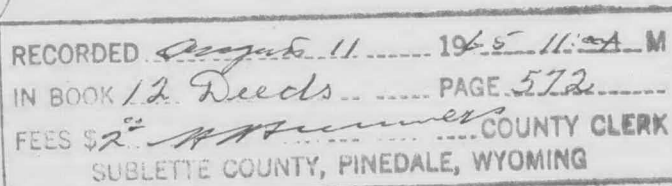 RECORDED August 11 1965 11:00 A M
IN BOOK 12 Deeds PAGE 572
FEES $2.00 COUNTY CLERK
SUBLETTE COUNTY, PINEDALE, WYOMING